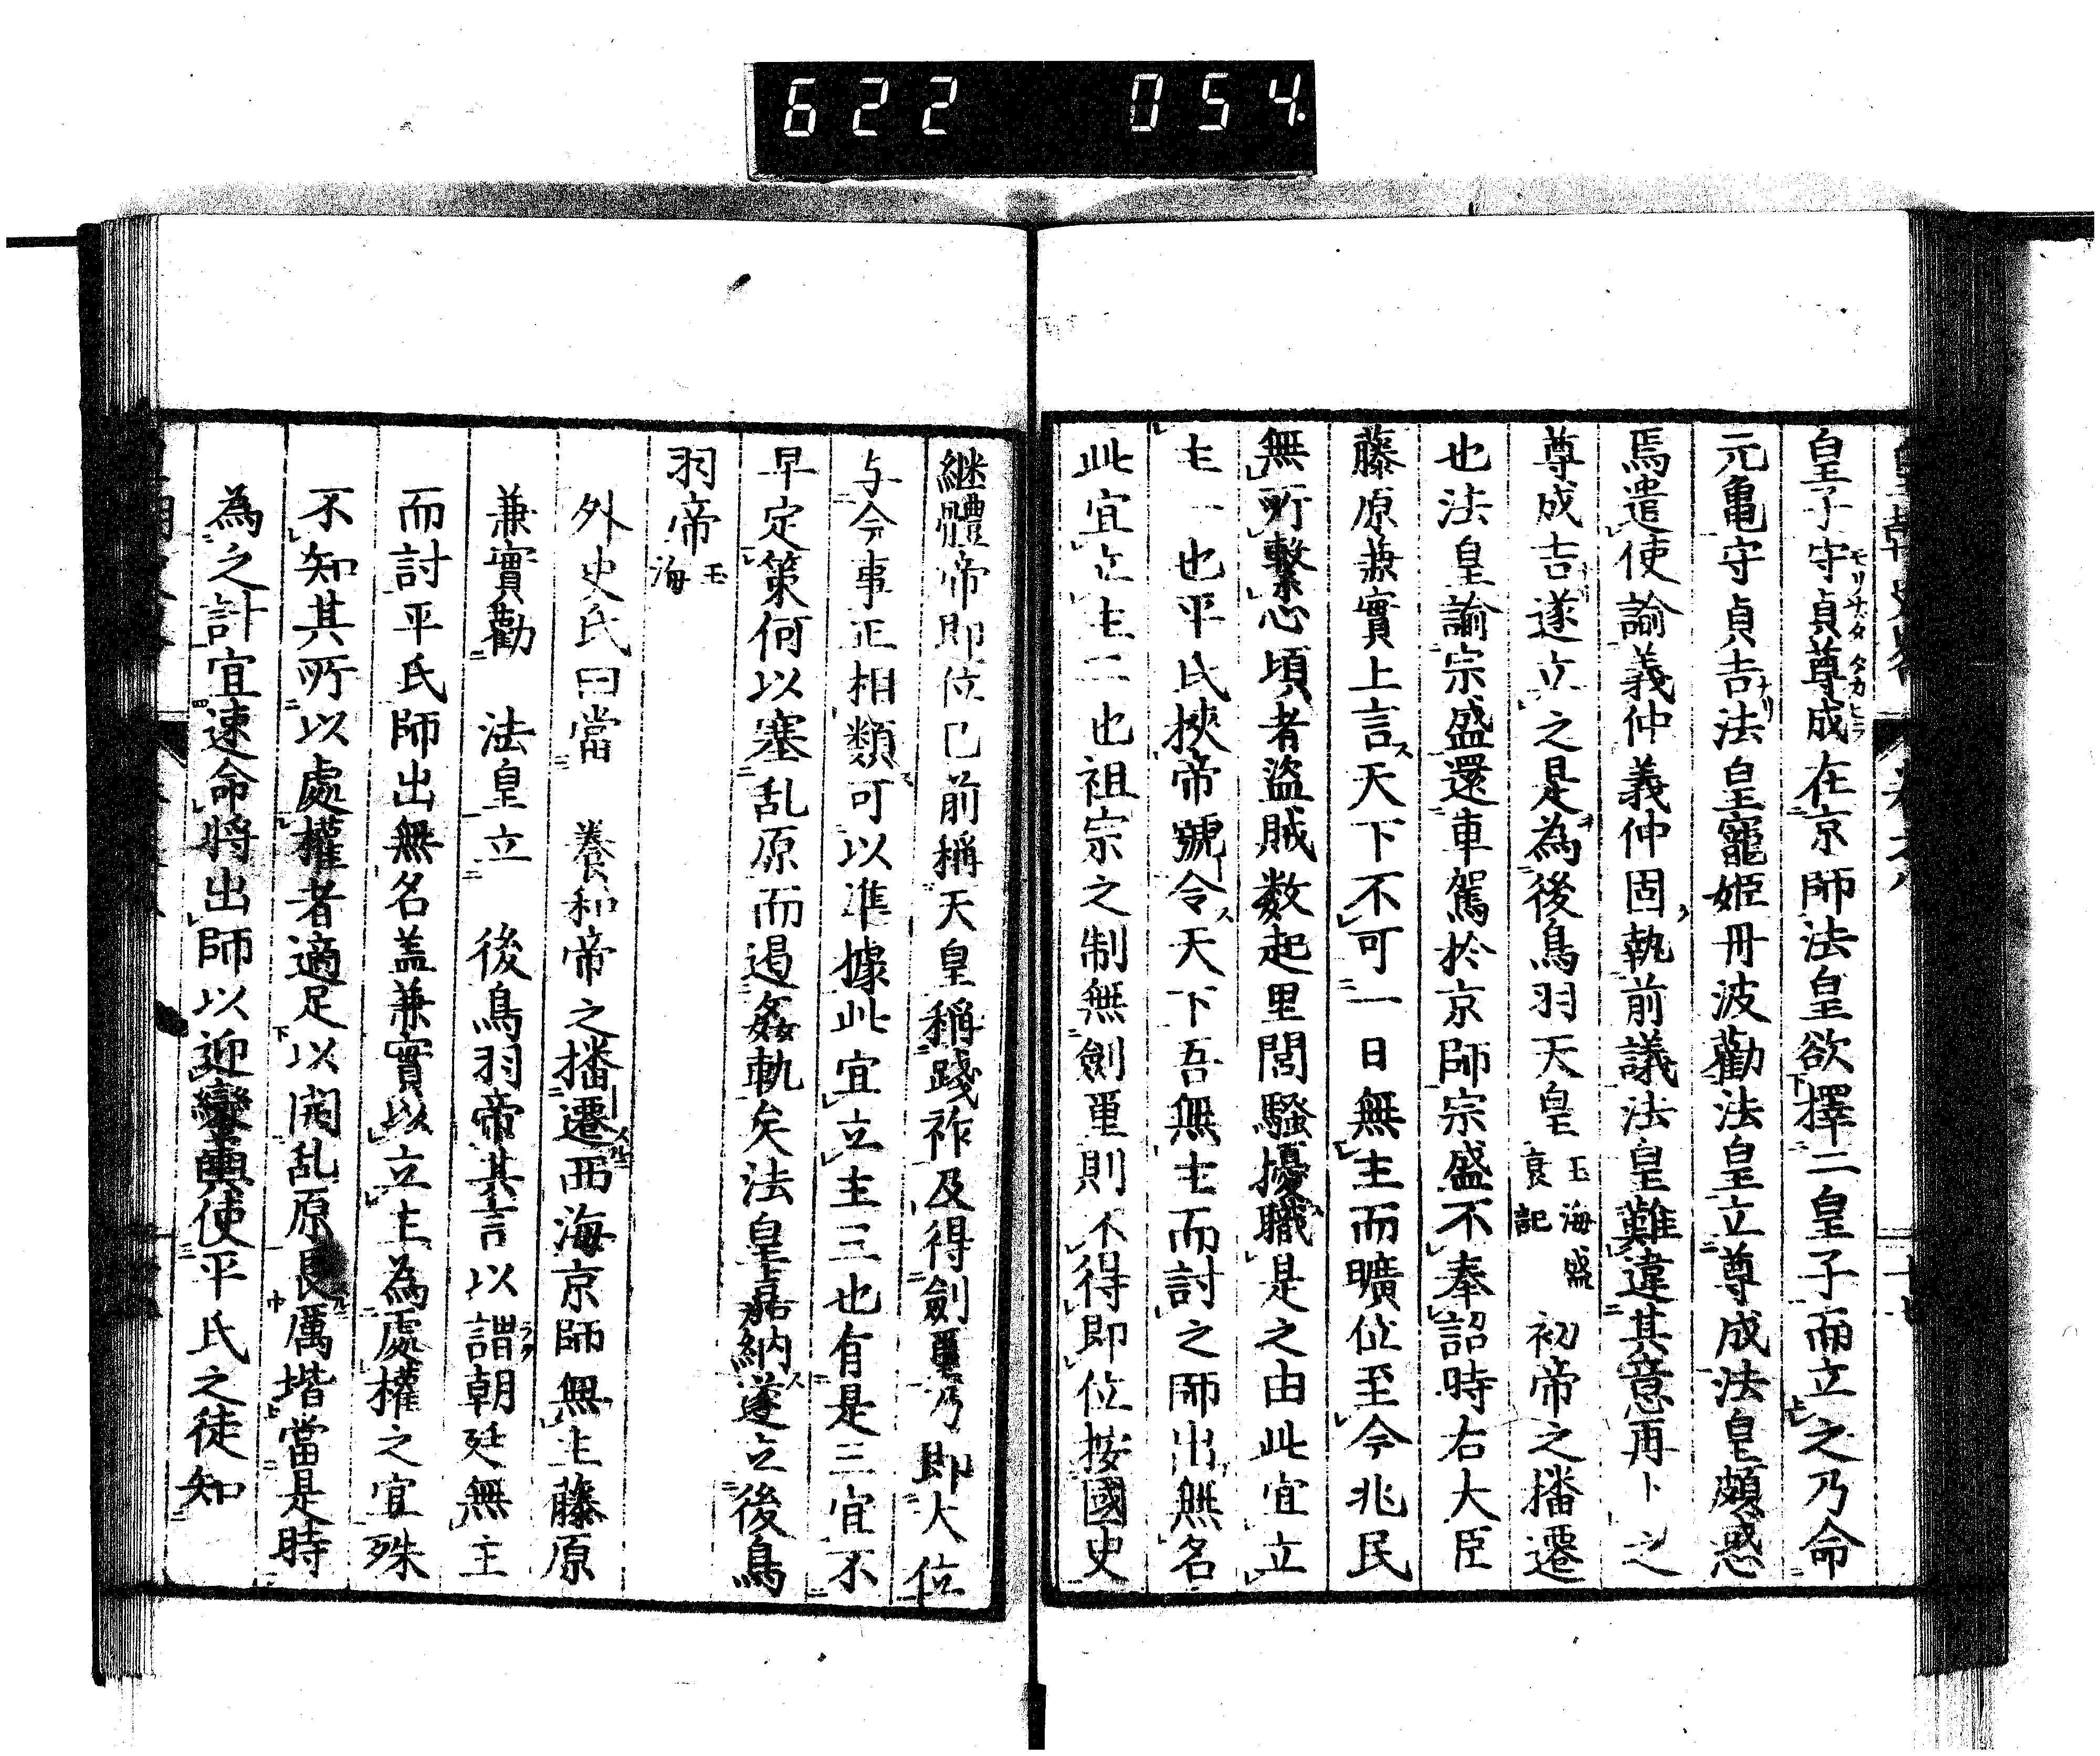 622 054
皇子守貞尊成在京師法皇欲擇二皇子而立之乃命
元亀守貞吉法皇寵姫丹波勸法皇立尊成法皇頗惑
焉遣使諭義仲義仲固執前議法皇難違其意再卜之
尊成吉遂立之是為後鳥羽天皇玉海盛衰記初帝之播遷
也法皇諭宗盛還車駕於京師宗盛不奉詔時右大臣
藤原兼實上言天下不可一日無主而曠位至今兆民
無所繫心頃者盜賊数起里閭騷擾職是之由此宜立
主一也平氏挾帝號令天下吾無主而討之師出無名
此宜立主二也祖宗之制無劍璽則不得即位按國史
継體帝即位已前稱天皇稱踐祚及得劍璽乃即大位
与今事正相類可以準據此宜立主三也有是三宜不
早定策何以塞乱原而遏姦軌矣法皇嘉納遂立後鳥
羽帝玉海
外史氏曰當養和帝之播遷西海京師無主藤原
兼實勸法皇立後鳥羽帝其言以謂朝廷無主
而討平氏師出無名盖兼實以立主為處權之宜殊
不知其所以處權者適足以開乱原長厲堦當是時
為之計宜速命將出師以迎鑾輿使平氏之徒知